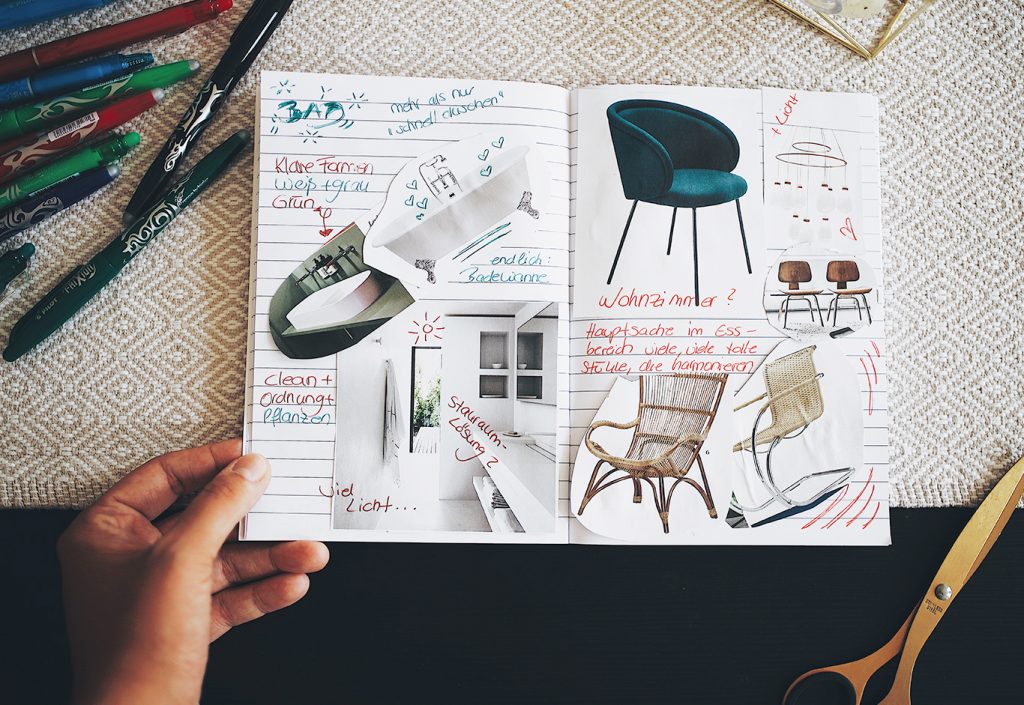 BAD
mehr als nur
"schnell duschen"
Klare Formen
weiß+grau
Grün
endlich:
Badewanne
clean+
ordnung+
Pflanzen
Stauraum-
Lösung?
viel
Licht...
+Licht
Wohnzimmer?
Hauptsache im Ess-
bereich viele, viele tolle
Stühle, die harmonieren
PILOT FRIXION